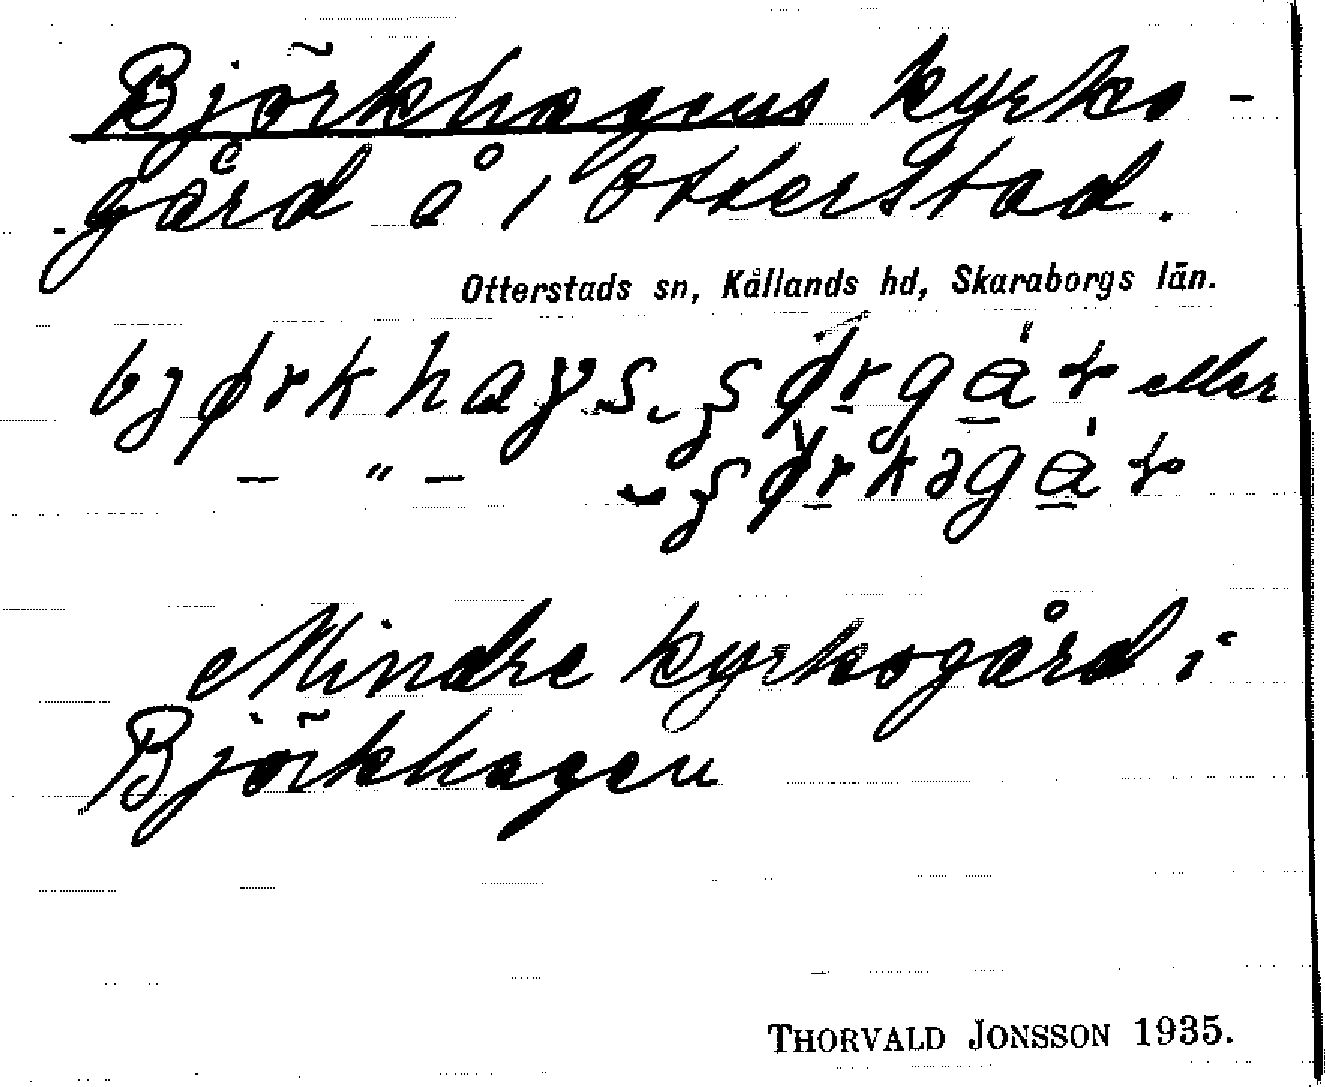 Björkhagens kyrko-
gård å i Otterstad.
Otterstads sn, Kållands hd, Skaraborgs län.
eller
– " –
Mindre kyrkogård i
Björkhagen
THORVALD JONSSON 1935.